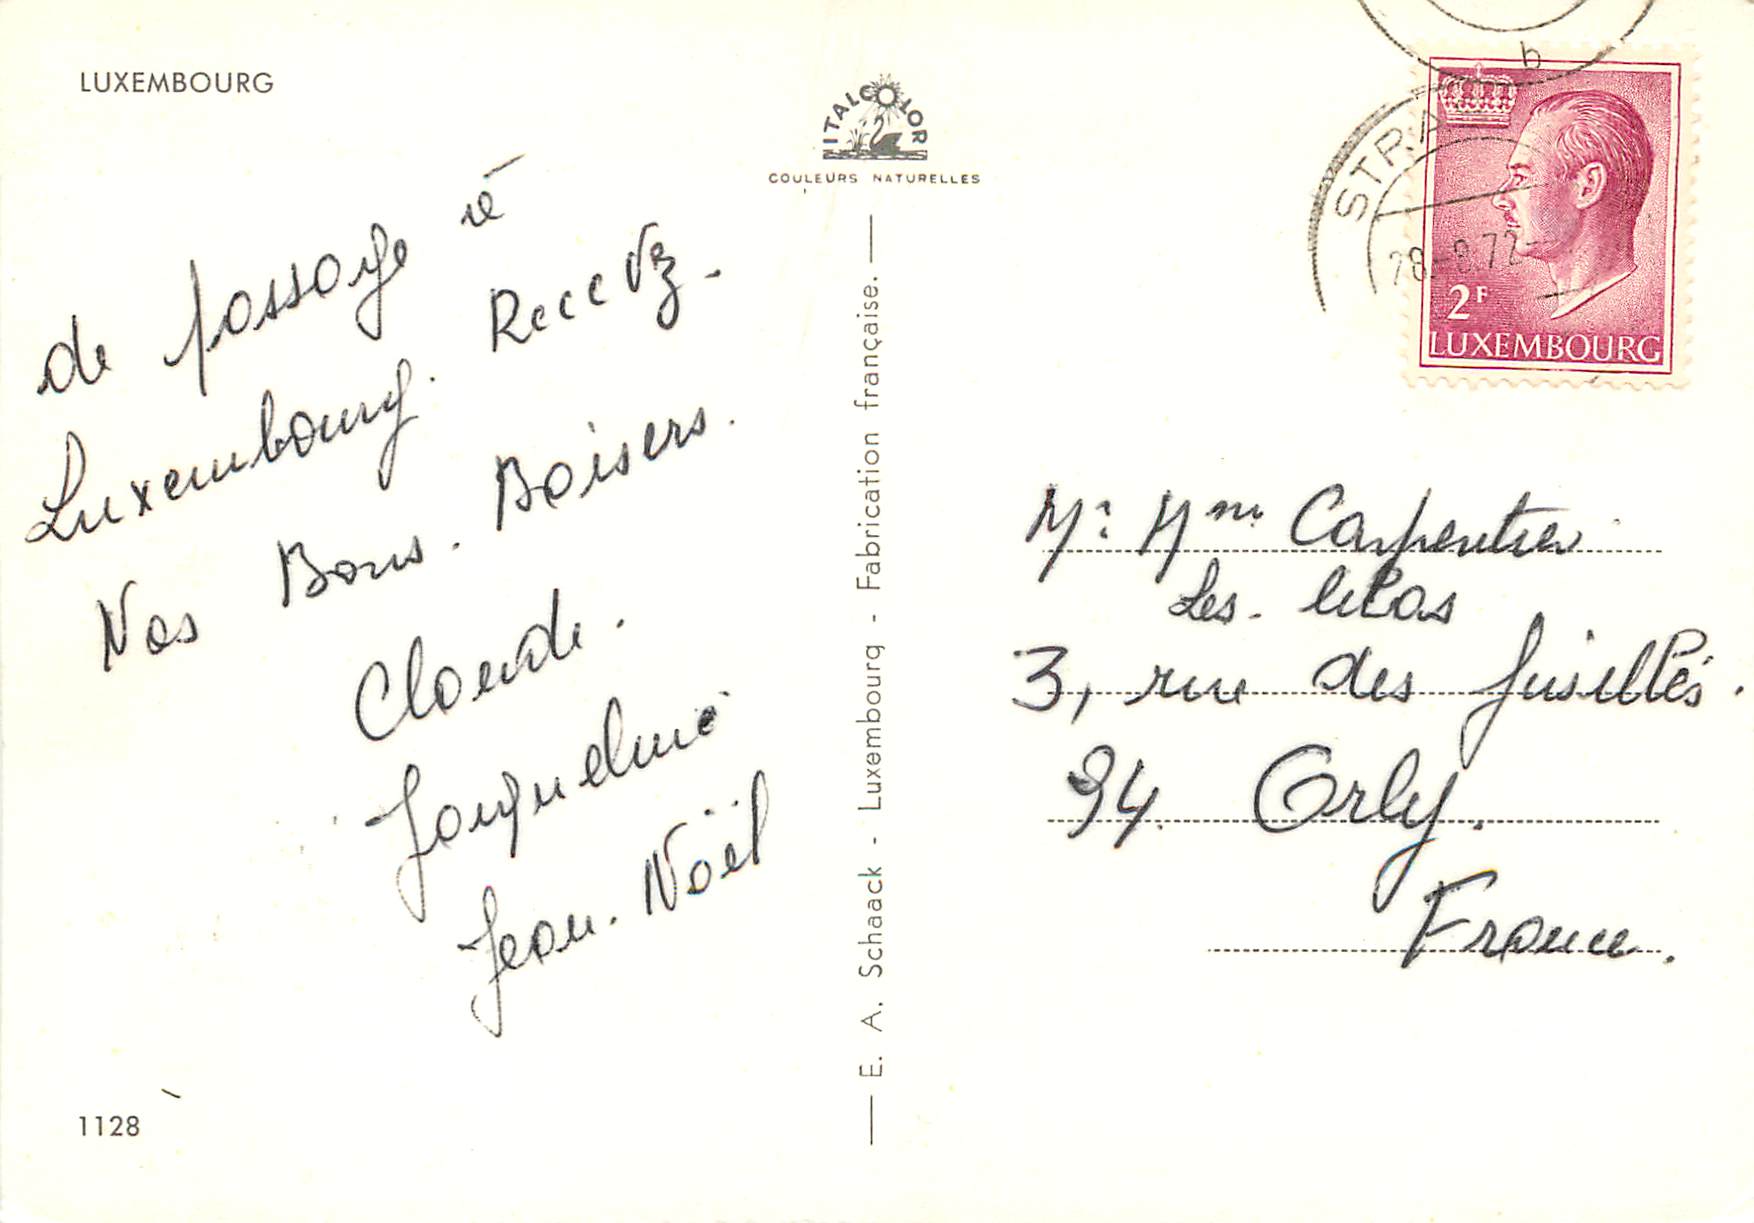 LUXEMBOURG
ITALCOLOR
COULEURS NATURELLES
de passage à
Luxembourg. Recevz.
Nos Bons. Baisers.
Claude.
Jacqueline
Jean. Noël
1128
E. A. Schaack - Luxembourg - Fabrication française.
b
STRA
28-8.72
2F
LUXEMBOURG
Mr Mme Carpentier
Les. lilas
3, rue des fusillés.
94. Orly.
France.